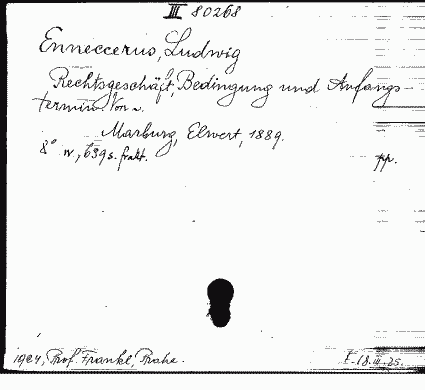 III 80268
Enneccerus, Ludwig
Rechtsgeschäft, Bedingung und Anfangs-
termin. Von –.
Marburg, Elwert, 1889.
8° IV, 639 s. frakt. pp.
1924, Prof. Frankl, Praha. I-18.III.25.